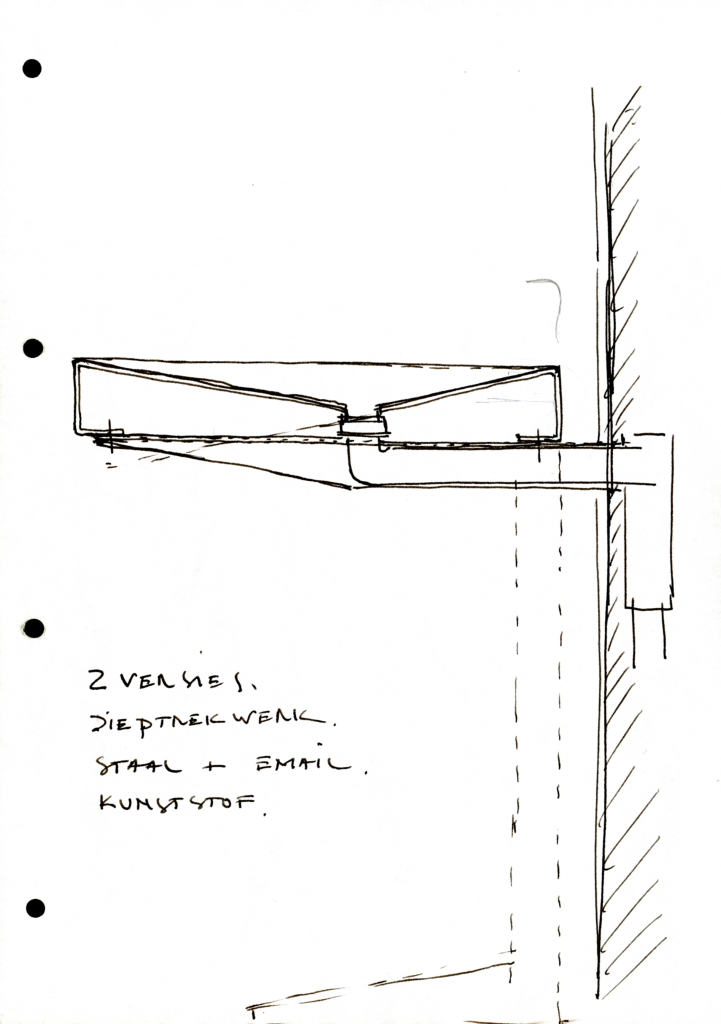 2 VERSIES.
DIEPTREKWERK.
STAAL + EMAIL.
KUNSTSTOF.